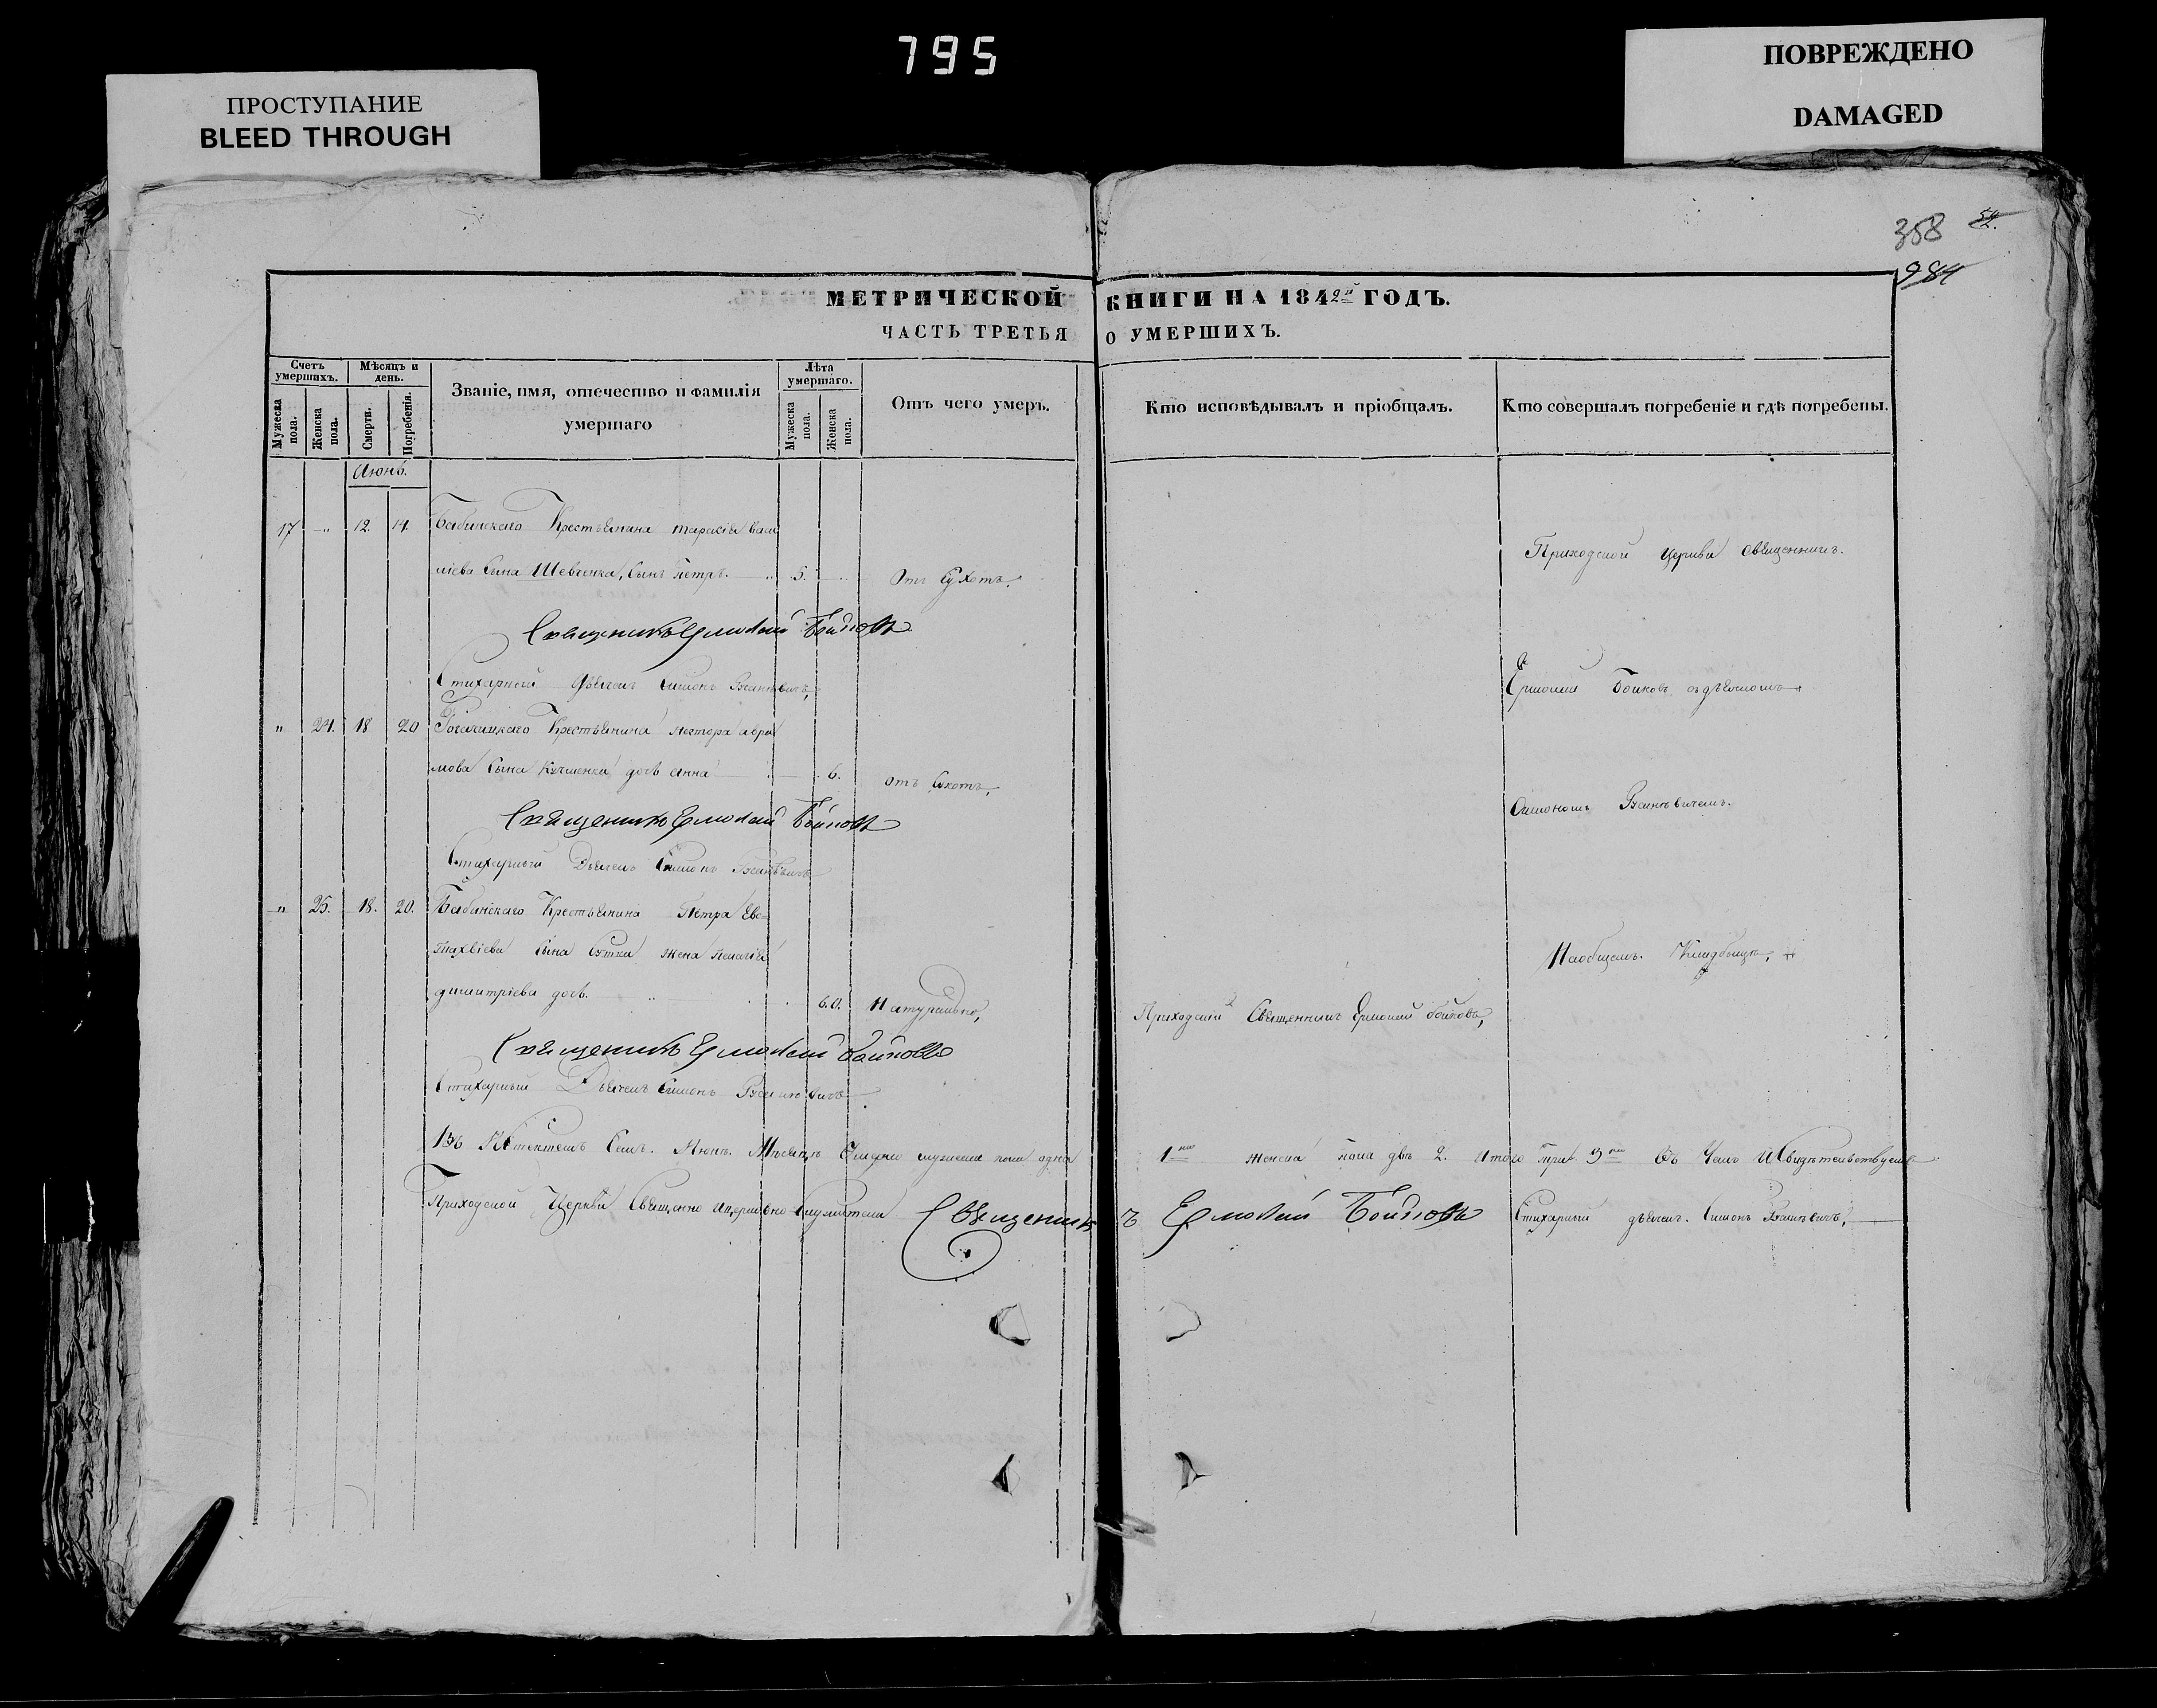 795
ПРОСТУПАНИЕ
BLEED THROUGH
ПОВРЕЖДЕНО
DAMAGED
358
984
МЕТРИЧЕСКОЙ КНИГИ НА 1842й ГОДЪ.
ЧАСТЬ ТРЕТЬЯ О УМЕРШИХЪ.
Счетъ умершихъ.
Мужеска пола.
Женска пола.
Мѣсяцъ и день.
Смерти.
Погребенія.
Званіе, имя, отечество и фамилія умершаго
Лѣта умершаго.
Мужеска пола.
Женска пола.
Отъ чего умеръ.
Кто исповѣдывалъ и пріобщалъ.
Кто совершалъ погребеніе и гдѣ погребены.
Июнь.
17 12. 14. Бабинскаго Крестьянина тарасія васи
ліева Сына Шевченка, Сынъ Петръ. 5. Отъ Сухотъ.
Приходской Церкви Священникъ.
Священникъ Ермолай Бойковъ
Стихарный Дьячекъ Симонъ
Ермолай Бойковъ съ дьячкомъ
" 24. 18 20 Крестьянина Нестора авра
мова Сына дочь анна 6. отъ Сухотъ,
Симономъ
Священникъ Ермолай Бойковъ
Стихарный Дьячекъ Симонъ
" 25. 18. 20. Бабинскаго Крестьянина Петра Евс
тахвіева Сына жена Пелагія
На общемъ Кладбищѣ,
димитріева дочь. 60. Натурально,
Приходскій Священникъ Ермолай бойковъ,
Священникъ Ермолай бойковъ
Стихарный Дьячекъ Симонъ
Июнѣ Мѣсяцѣ мужеска пола одинъ 1 женска пола двѣ 2. Итого три 3 Въ Чемъ Свидѣтельствуемъ
Приходской Церкви Священно Церковно Служители Священникъ Ермолай Бойковъ Стихарный дьячекъ Симонъ